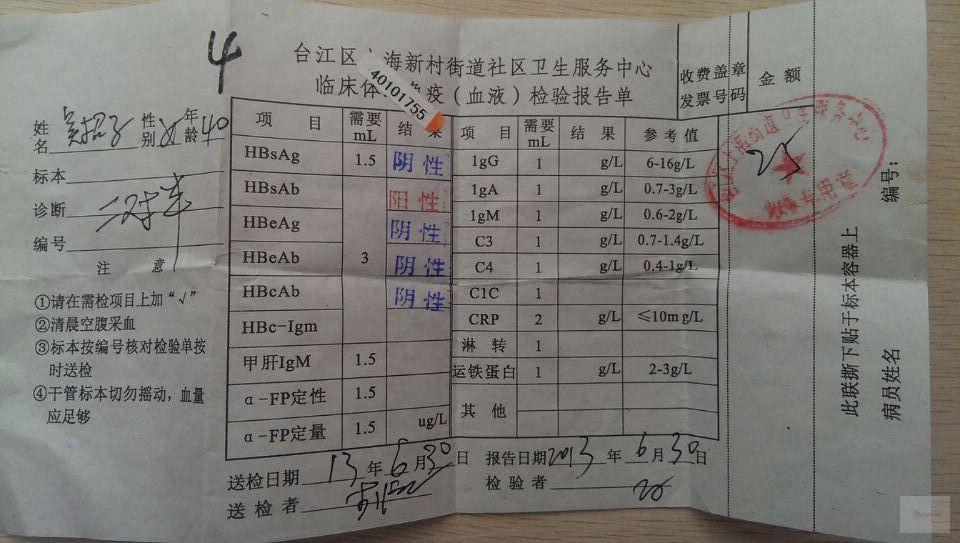 4
台江区 海新村街道社区卫生服务中心
临床体 疫（血液）检验报告单
40101755
收费盖章 金额
发票号码
25
专用章
姓名 性别 女 年龄 40
标本
诊断
编号
注 意
①请在需检项目上加“√”
②清晨空腹采血
③标本按编号核对检验单按
时送检
④干管标本切勿摇动，血量
应足够
项 目 需要mL 结 果 项 目 需要mL 结 果 参考值
HBsAg 1.5 阴性 1gG 1 g/L 6-16g/L
HBsAb 阳性 1gA 1 g/L 0.7-3g/L
HBeAg 阴性 1gM 1 g/L 0.6-2g/L
HBeAb 3 阴性 C3 1 g/L 0.7-1.4g/L
HBcAb 阴性 C4 1 g/L 0.4-1g/L
C1C 1
HBc-Igm CRP 2 g/L ≤10mg/L
淋 转 1
甲肝IgM 1.5 运铁蛋白 1 g/L 2-3g/L
α-FP定性 1.5 其 他
α-FP定量 1.5 ug/L
送检日期 13 年 6 月 30 日 报告日期 2013 年 6 月 30 日
送 检 者 检 验 者
此联撕下贴于标本容器上
编号：
病员姓名